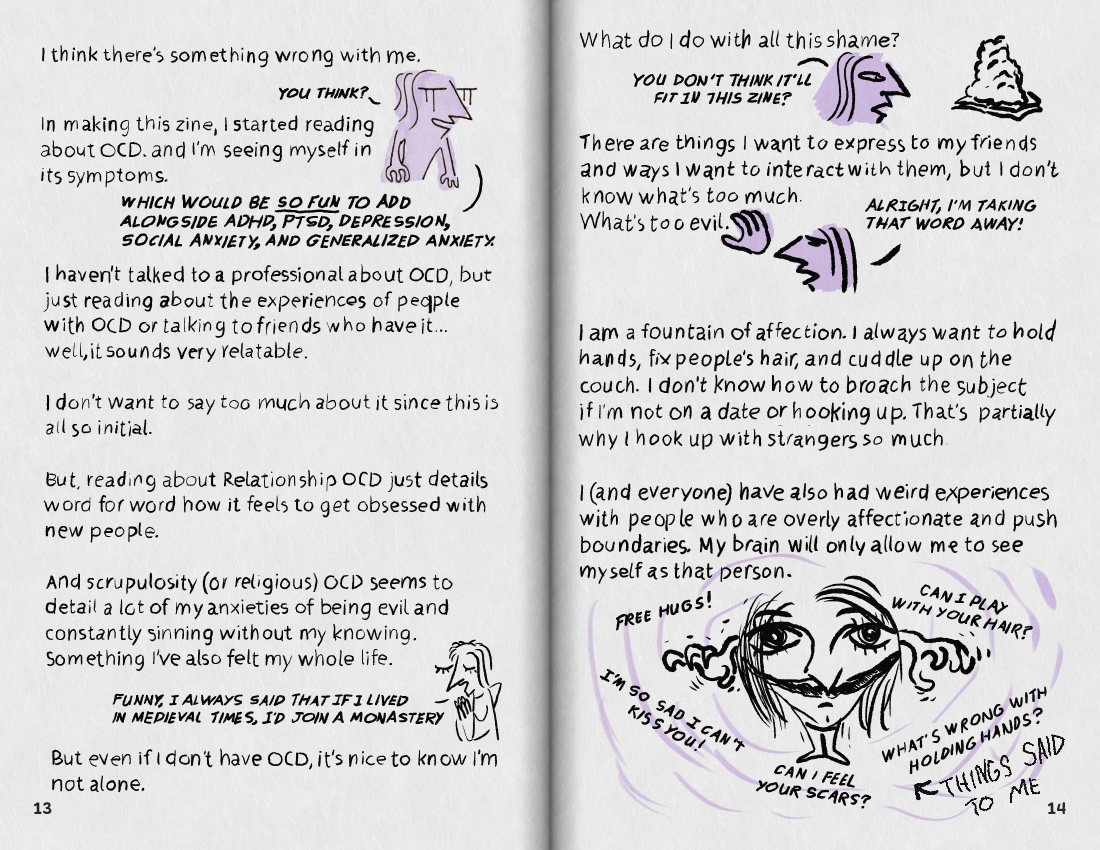 I think there's something wrong with me.
YOU THINK?
In making this zine, I started reading
about OCD. and I'm seeing myself in
its symptoms.
WHICH WOULD BE SO FUN TO ADD
ALONGSIDE ADHD, PTSD, DEPRESSION,
SOCIAL ANXIETY, AND GENERALIZED ANXIETY.
I haven't talked to a professional about OCD, but
just reading about the experiences of people
with OCD or talking to friends who have it...
well, it sounds very relatable.
I don't want to say too much about it since this is
all so initial.
But, reading about Relationship OCD just details
word for word how it feels to get obsessed with
new people.
And scrupulosity (or religious) OCD seems to
detail a lot of my anxieties of being evil and
constantly sinning without my knowing.
Something I've also felt my whole life.
FUNNY, I ALWAYS SAID THAT IF I LIVED
IN MEDIEVAL TIMES, I'D JOIN A MONASTERY
But even if I don't have OCD, it's nice to know I'm
not alone.
13
What do I do with all this shame?
YOU DON'T THINK IT'LL
FIT IN THIS ZINE?
There are things I want to express to my friends
and ways I want to interact with them, but I don't
know what's too much.
What's too evil.
ALRIGHT, I'M TAKING
THAT WORD AWAY!
I am a fountain of affection. I always want to hold
hands, fix people's hair, and cuddle up on the
couch. I don't know how to broach the subject
if I'm not on a date or hooking up. That's partially
why I hook up with strangers so much.
I (and everyone) have also had weird experiences
with people who are overly affectionate and push
boundaries. My brain will only allow me to see
myself as that person.
FREE HUGS!
CAN I PLAY
WITH YOUR HAIR?
I'M SO SAD I CAN'T
KISS YOU!
WHAT'S WRONG WITH
HOLDING HANDS?
CAN I FEEL
YOUR SCARS?
THINGS SAID
TO ME
14